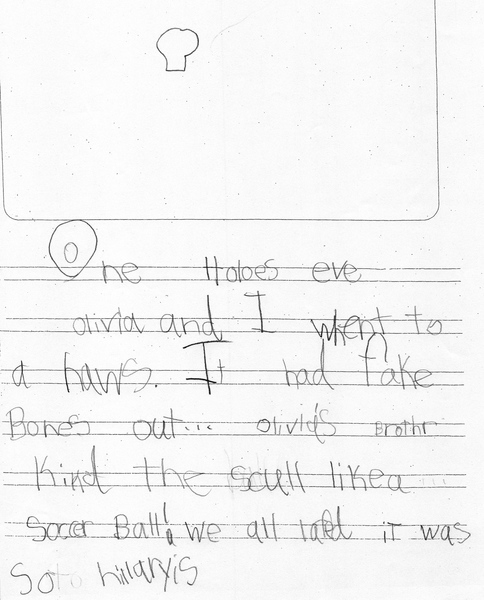 One Holoes eve
olivia and I whent to
a haws. It had fake
Bones out... olivia's Brothr
Kind the scull like a
Soccer Ball! we all laft it was
So hillaryis